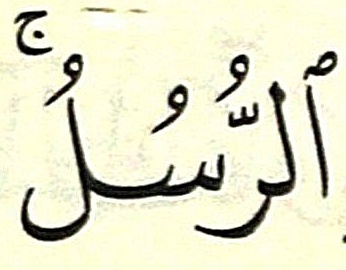 ٱلرُّسُلُۚ